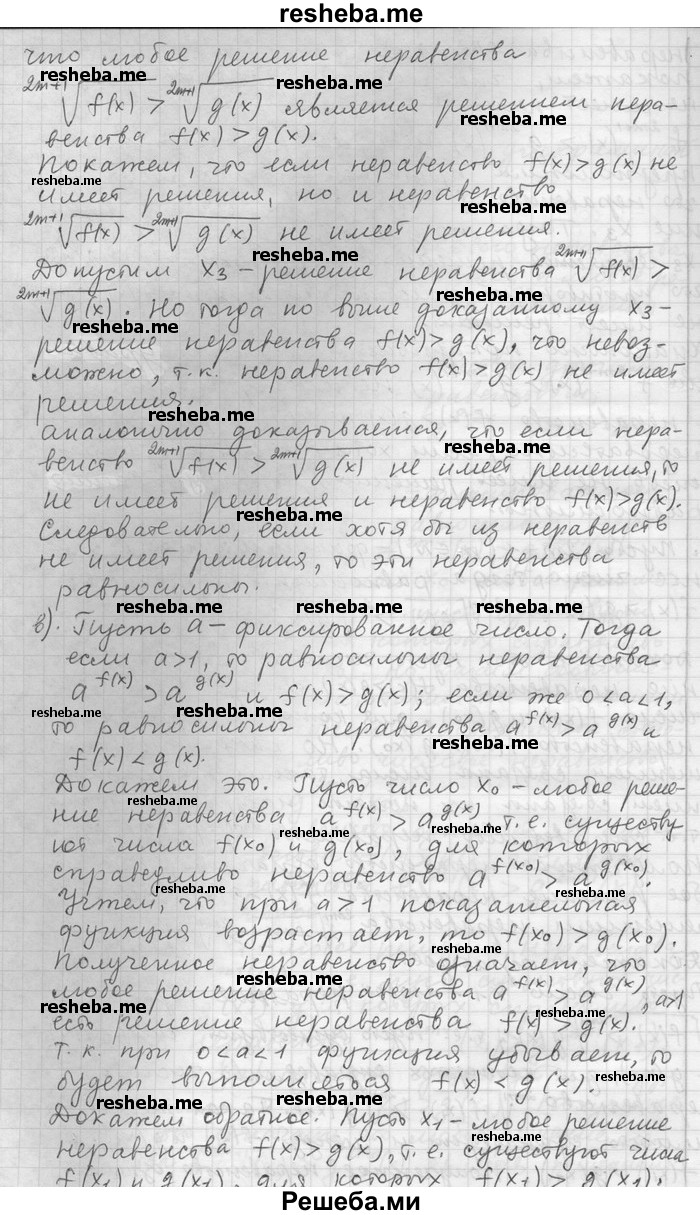 resheba.me
что любое решение неравенства
resheba.me resheba.me
²ᵐ⁺¹√f(x) > ²ᵐ⁺¹√g(x) является решением нера-
resheba.me
венства f(x)>g(x).
Покажем, что если неравенство f(x)>g(x) не
resheba.me
имеет решения, но и неравенство
resheba.me
²ᵐ⁺¹√f(x) > ²ᵐ⁺¹√g(x) не имеет решения.
resheba.me
Допустим x₃ - решение неравенства ²ᵐ⁺¹√f(x) >
resheba.me
²ᵐ⁺¹√g(x). Но тогда по выше доказанному x₃-
resheba.me
решение неравенства f(x)>g(x), что невоз-
можно, т.к. неравенство f(x)>g(x) не имеет
решения.
resheba.me
Аналогично доказывается, что если нера-
resheba.me
венство ²ᵐ⁺¹√f(x) > ²ᵐ⁺¹√g(x) не имеет решения, то
не имеет решения и неравенство f(x)>g(x).
resheba.me
Следовательно, если хотя бы из неравенств
не имеет решения, то эти неравенства
равносильны.
resheba.me resheba.me resheba.me
в). Пусть a - фиксированное число. Тогда
если a>1, то равносильны неравенства
a^f(x) > a^g(x) и f(x)>g(x); если же 0<a<1,
resheba.me resheba.me resheba.me
то равносильны неравенства a^f(x) > a^g(x) и
resheba.me
f(x)<g(x).
Докажем это. Пусть число x₀ - любое реше-
resheba.me
ние неравенства a^f(x) > a^g(x), т.е. существу
resheba.me resheba.me
ют числа f(x₀) и g(x₀), для которых
справедливо неравенство a^f(x₀) > a^g(x₀).
resheba.me resheba.me
Учтем, что при a>1 показательная
функция возрастает, то f(x₀)>g(x₀).
resheba.me
Полученное неравенство означает, что
resheba.me
любое решение неравенства a^f(x) > a^g(x), a>1
resheba.me resheba.me
есть решение неравенства f(x)>g(x).
Т.к. при 0<a<1 функция убывает, то
resheba.me
будет выполняться f(x)<g(x).
resheba.me resheba.me
Докажем обратное. Пусть x₁ - любое решение
resheba.me
неравенства f(x)>g(x), т.е. существуют числа
resheba.me
f(x₁) и g(x₁), для которых f(x₁)>g(x₁).
Решеба.ми